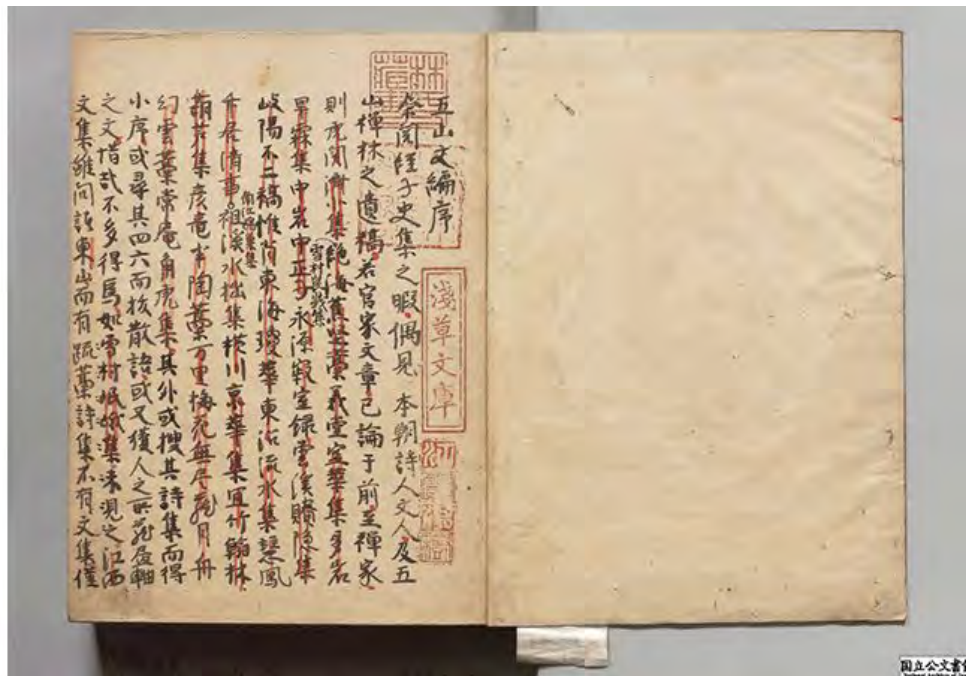 五山文編序
余閲経子史集之暇偶見本朝詩人文人及五
山禅林之遺稿若官家文章已論于前至禅家
則虎関済北集絶海蕉堅藁義堂空華集夢岩
雪村岷峩集
旱霖集中岩中正子永源寂室録雲渓贅隠集
岐陽不二稿惟肖東海瓊華東沼流水集
居清事祖渓水拙集横川京華集宜竹翰林
葫芦集彦竜半陶藁万里梅花無尽蔵月舟
幻雲藁常庵角虎集其外或捜其詩集而得
小序或尋其四六而抜散語或又獲人之所蔵巻軸
之文惜哉不多得焉如雪村岷峨集未見之江西
文集雖問諸東山而有疏藁詩集不有文集僅
林氏蔵書
淺草文庫
国立公文書